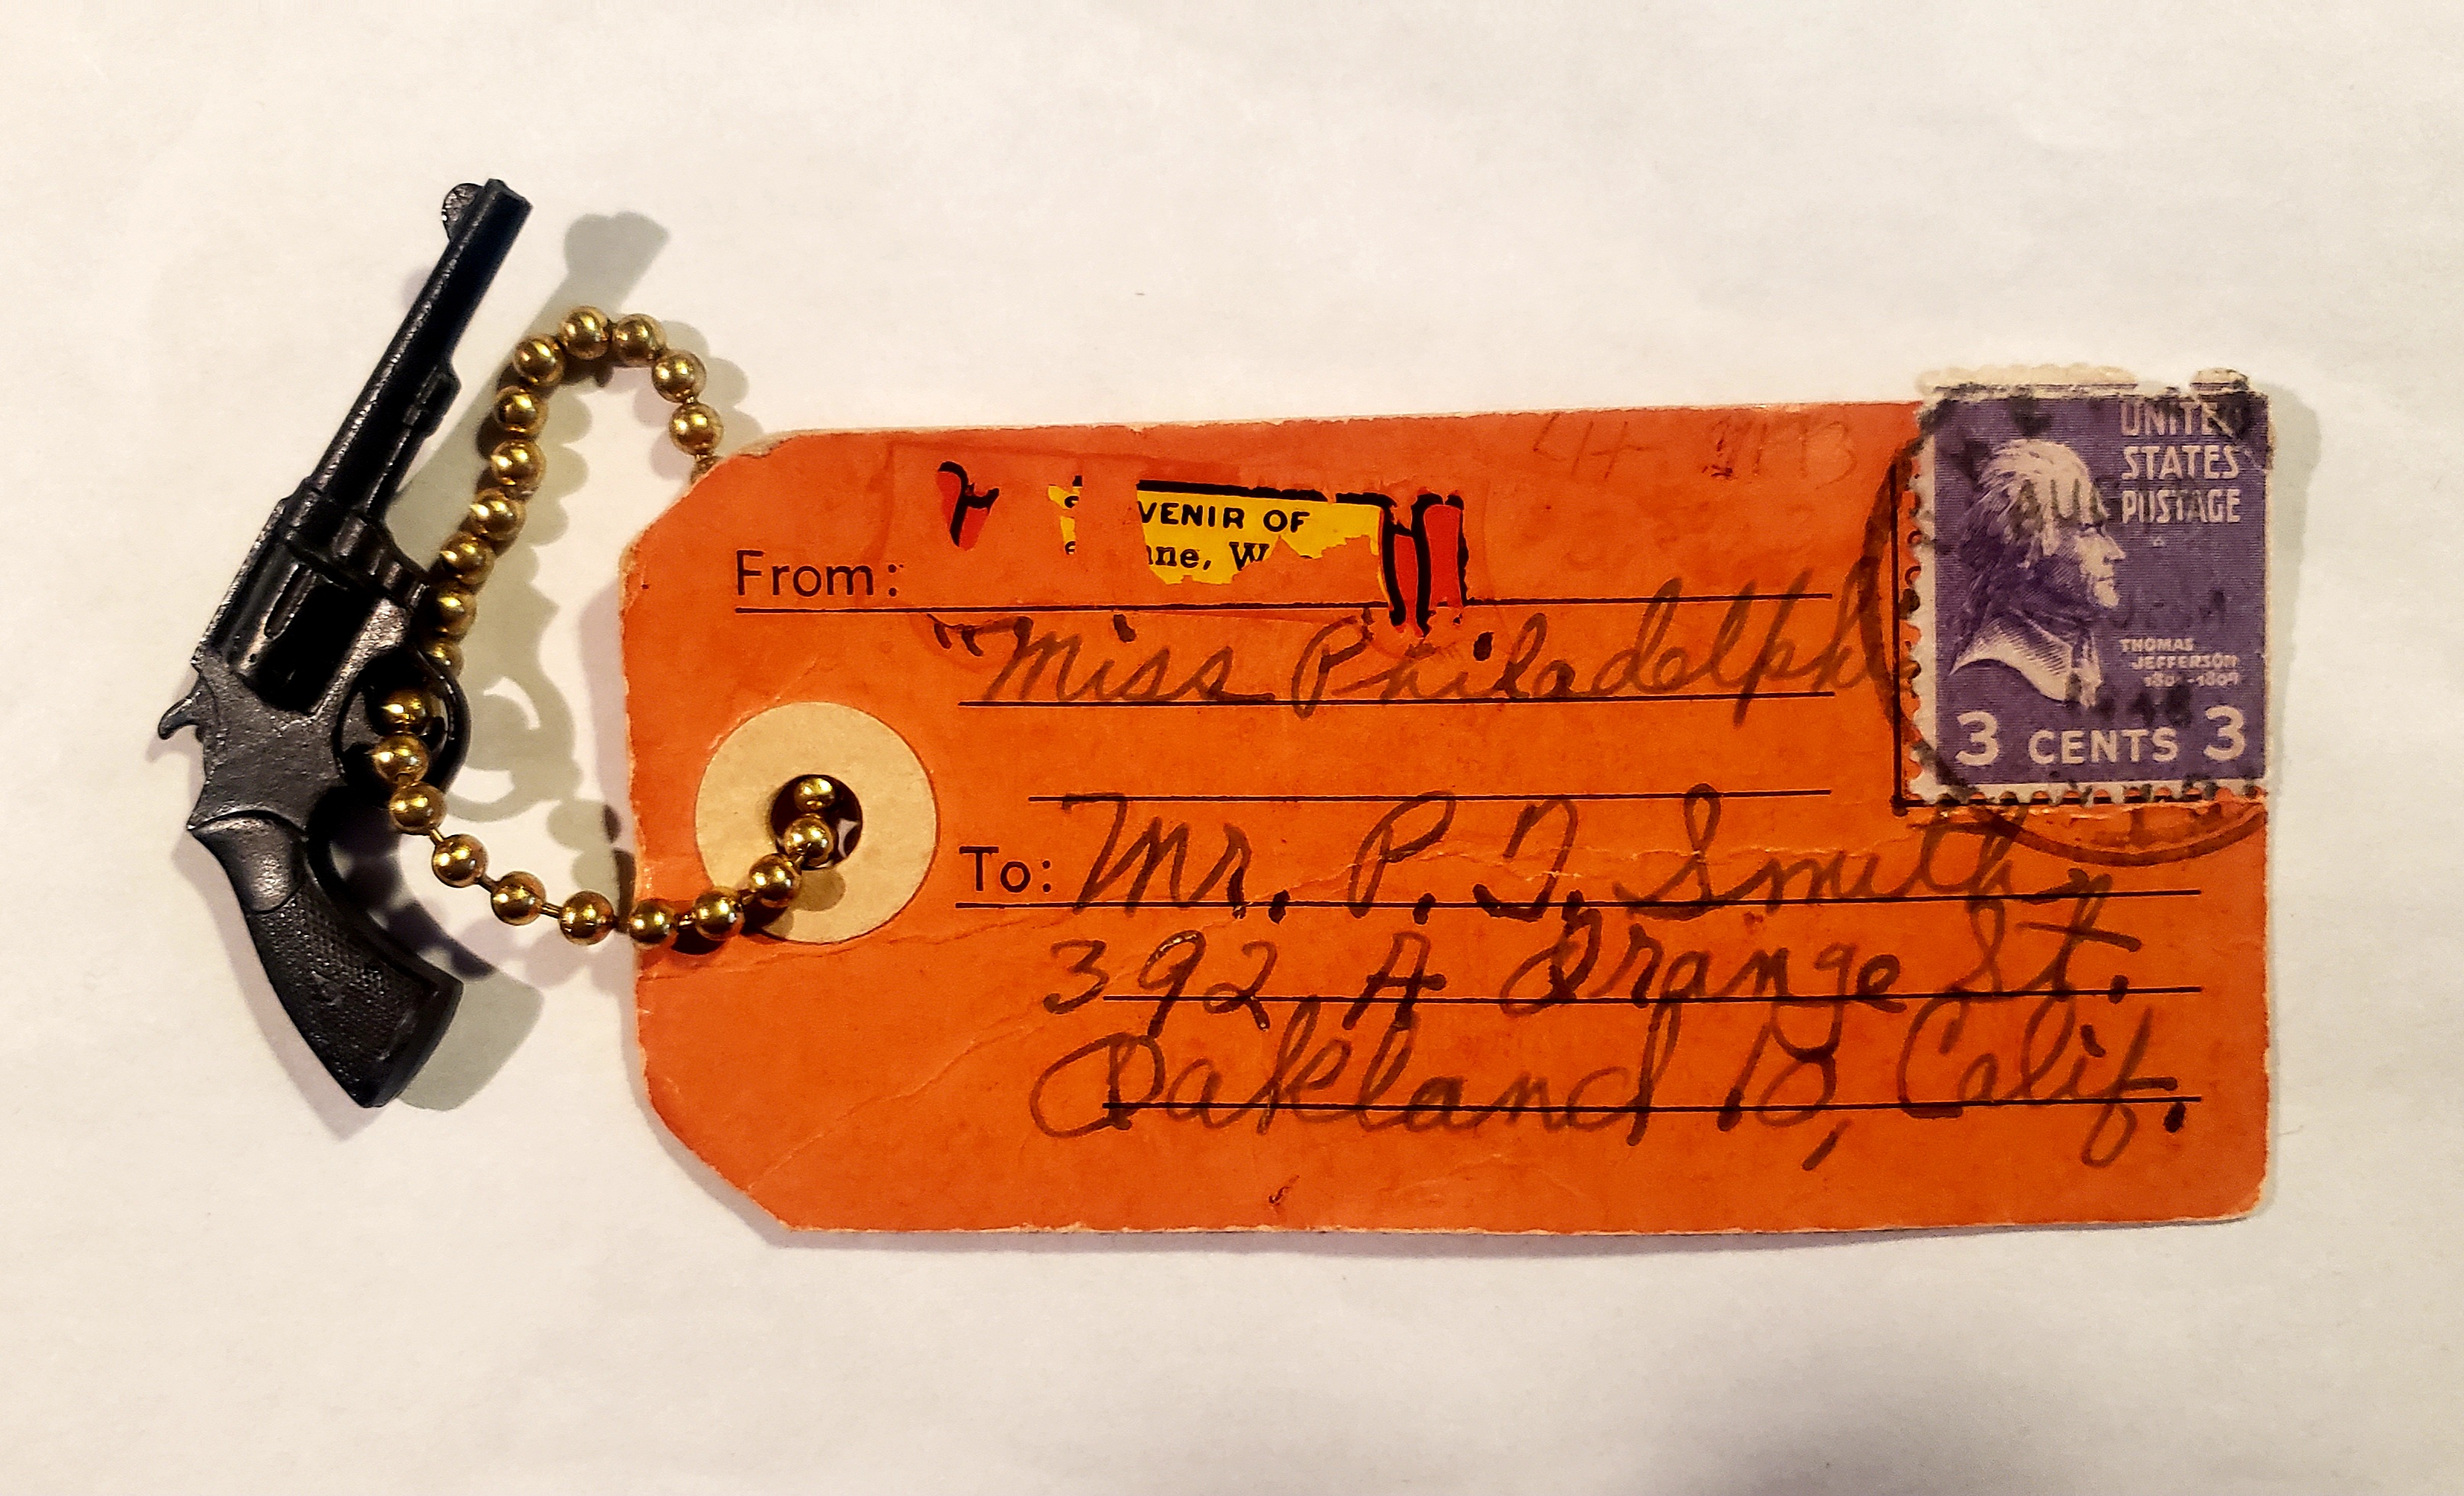 VENIR OF
ne, W
From:
"Miss Philadelph
To: Mr. P. T. Smith
392 A Orange St.
Oakland 10, Calif.
UNITED
STATES
POSTAGE
THOMAS
JEFFERSON
1801-1809
3 CENTS 3